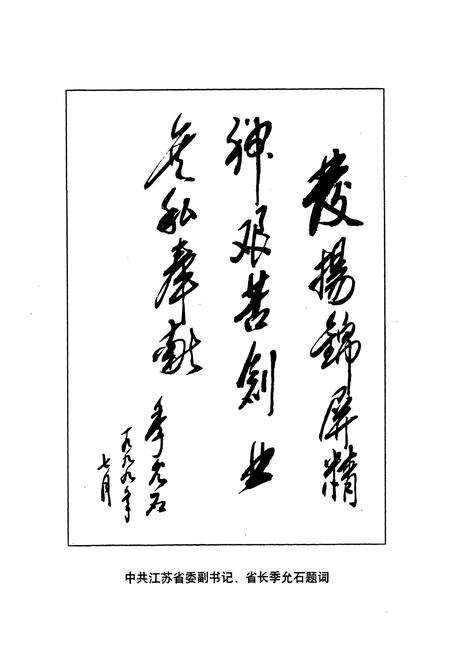 發揚錦屏精
神艰苦創业
无私奉献
季允石
一九九九年
七月
中共江苏省委副书记、省长季允石题词